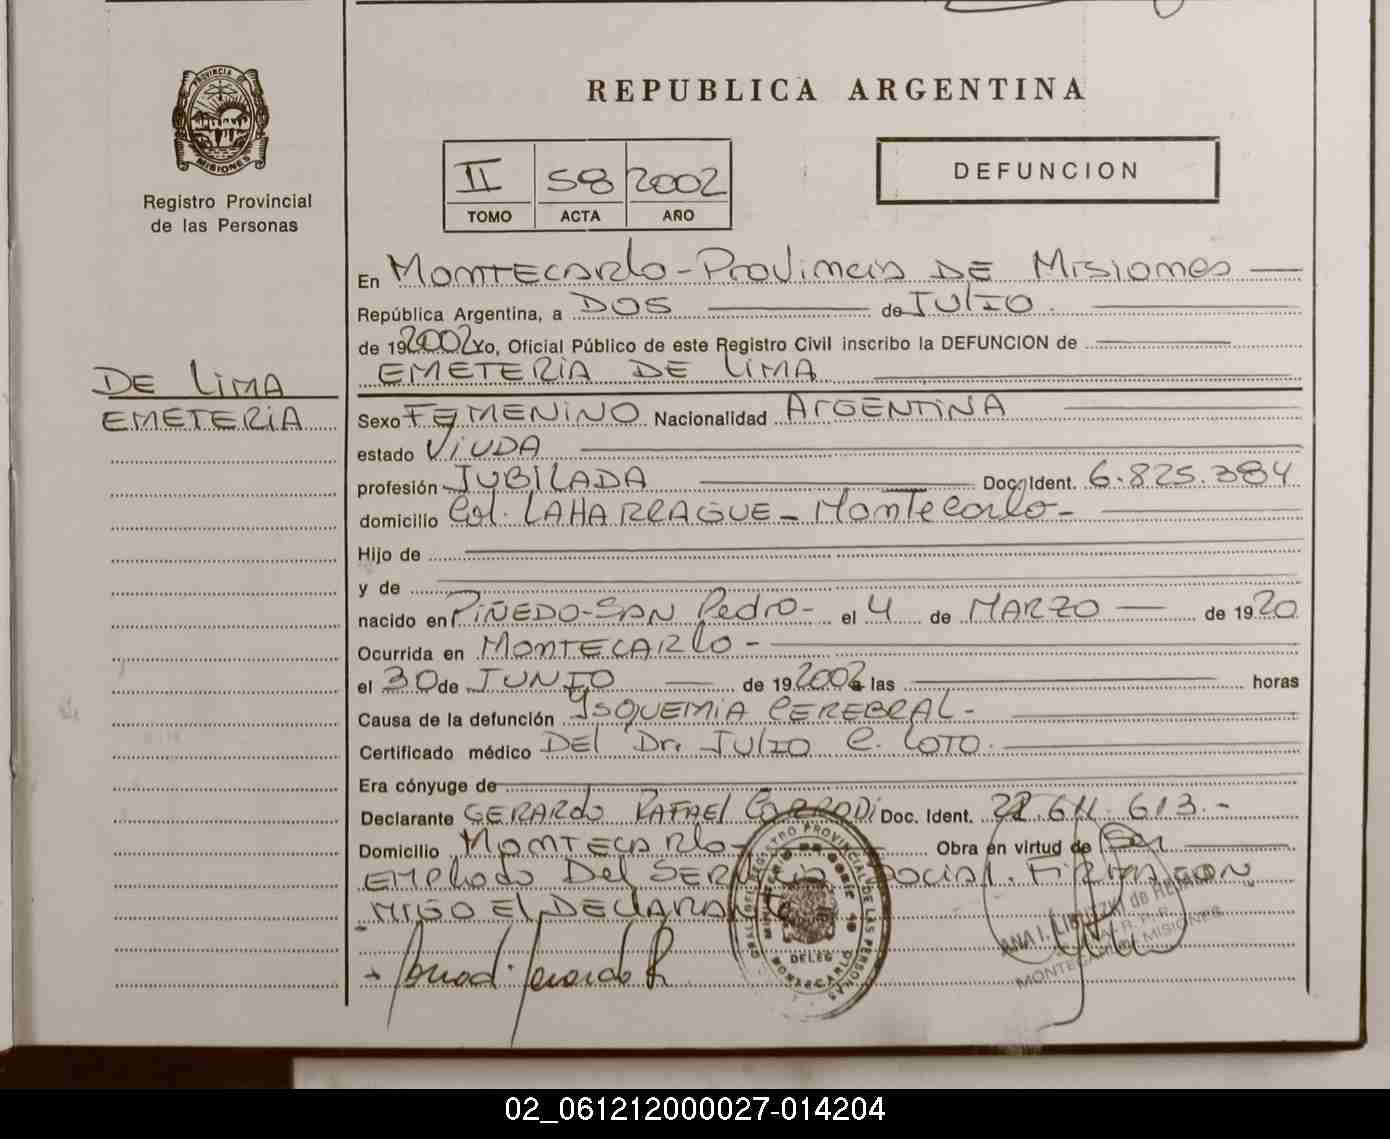 REPUBLICA ARGENTINA
PROVINCIA DE
MISIONES
Registro Provincial
de las Personas
II 58 2002
TOMO ACTA AÑO
DEFUNCION
En MONTECARLO - PROVINCIA DE MISIONES
República Argentina, a DOS de JULIO.
de 192002 Yo, Oficial Público de este Registro Civil inscribo la DEFUNCION de
EMETERIA DE LIMA
DE LIMA
EMETERIA
Sexo FEMENINO Nacionalidad ARGENTINA
estado VIUDA
profesión JUBILADA Doc. Ident. 6.825.384
domicilio Col. LAHARRAGUE - Montecarlo -
Hijo de
y de
nacido en PIÑEDO - SAN Pedro - el 4 de MARZO de 1920
Ocurrida en MONTECARLO -
el 30 de JUNIO de 192002 a las horas
Causa de la defunción ISQUEMIA CEREBRAL -
Certificado médico DEL Dr. JULIO C. LOTO.
Era cónyuge de
Declarante GERARDO RAFAEL CORRODI Doc. Ident. 22.611.613.-
Domicilio MONTECARLO - Obra en virtud de Ser
EMPLEADO DEL SERVICIO SOCIAL. FIRMA CON
MIGO EL DECLARANTE
DELEG
MONTECARLO
MONTECARLO MISIONES
02_061212000027-014204